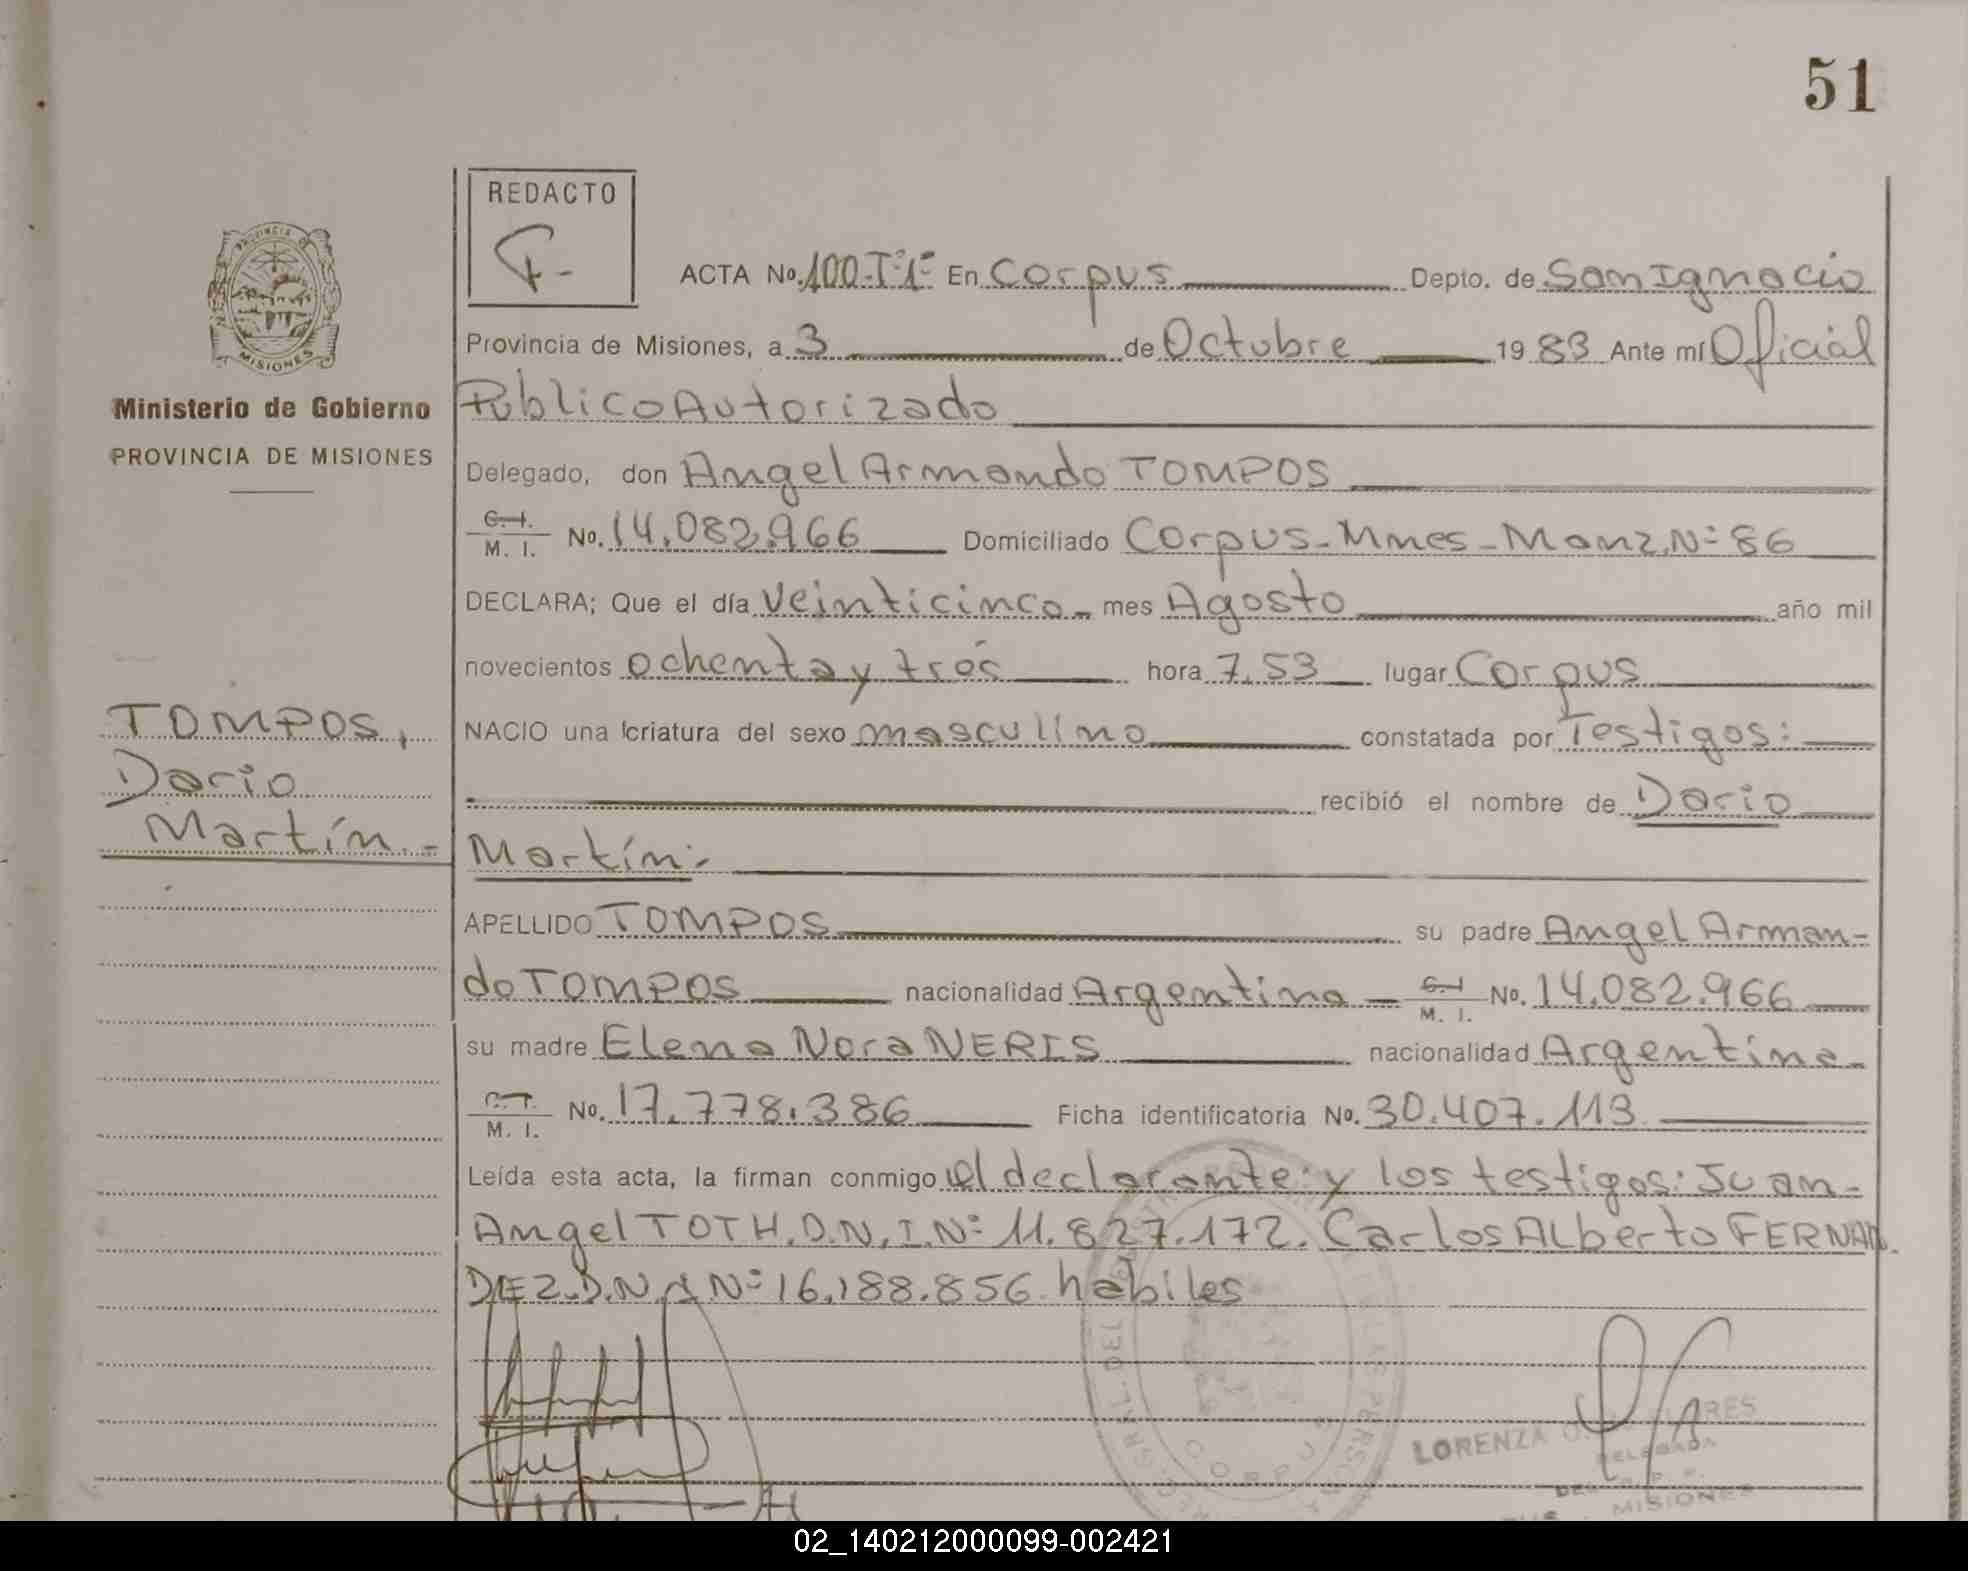 51
REDACTO
PROVINCIA DE
MISIONES
Ministerio de Gobierno
PROVINCIA DE MISIONES
TOMPOS,
Dario
Martín.-
ACTA No. 100-T°1° En Corpus Depto. de San Ignacio
Provincia de Misiones, a 3 de Octubre 19 83 Ante mí Oficial
Público Autorizado
Delegado, don Angel Armando TOMPOS
C.I. M. I. No. 14.082.966 Domiciliado Corpus-Mnes-Manz.N°86
DECLARA; Que el día veinticinco- mes Agosto año mil
novecientos ochenta y tres hora 7,53 lugar Corpus
NACIO una criatura del sexo masculino constatada por Testigos:
recibió el nombre de Dario
Martín.-
APELLIDO TOMPOS su padre Angel Arman-
do TOMPOS nacionalidad Argentina C.I. M. I. No. 14.082.966
su madre Elena Nora NERIS nacionalidad Argentina-
C.I. M. I. No. 17.778.386 Ficha identificatoria No. 30.407.113
Leída esta acta, la firman conmigo el declarante y los testigos: Juan-
Angel TOTH.D.N.I.N° 11.827.172. Carlos Alberto FERNAN.
DEZ.D.N.I N°16.188.856 habiles
CORPUS
LORENZA
DELEGADA
MISIONES
02_140212000099-002421